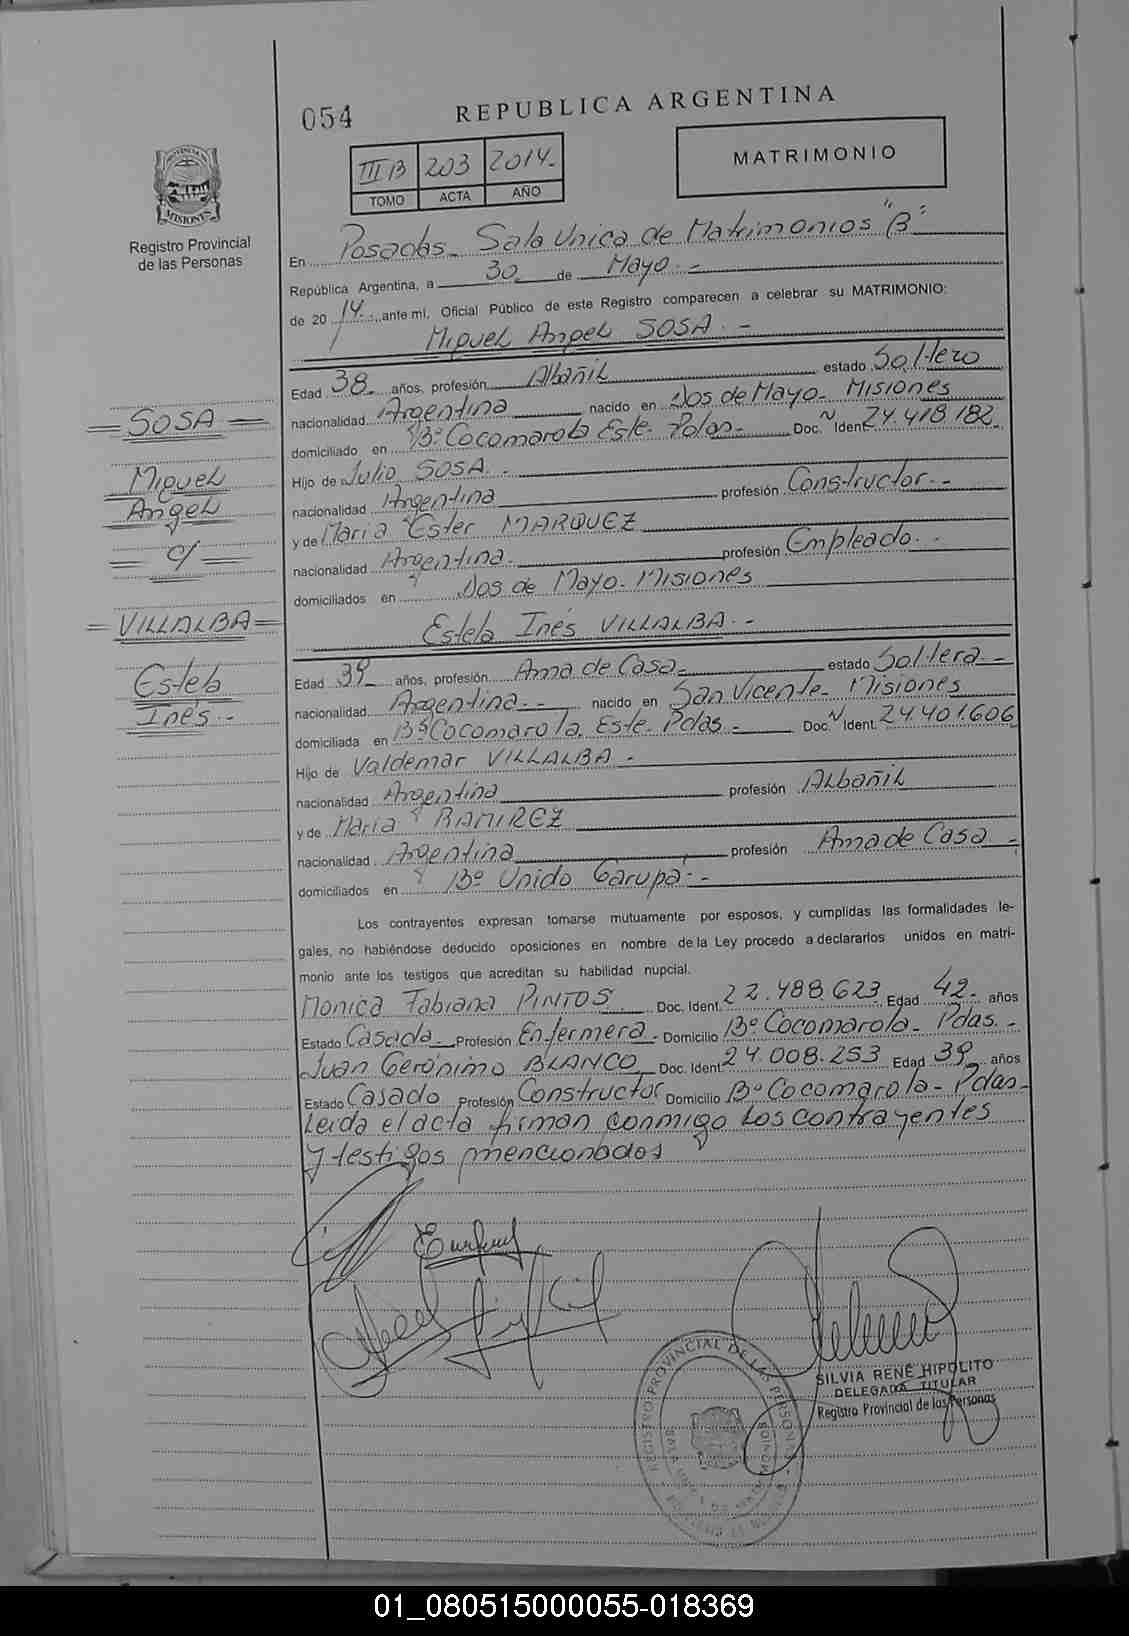 054
REPUBLICA ARGENTINA
III B 203 2014.-
TOMO ACTA AÑO
MATRIMONIO
PROVINCIA
MISIONES
Registro Provincial
de las Personas
En Posadas - Sala Unica de Matrimonios "B"
República Argentina, a 30 de Mayo.-
de 20 14. ante mí, Oficial Público de este Registro comparecen a celebrar su MATRIMONIO:
Miguel Angel SOSA.-
Edad 38 años, profesión Albañil estado Soltero
nacionalidad Argentina nacido en Dos de Mayo - Misiones
domiciliado en Bº Cocomarola Este - Pdas.- Doc. Ident. 24.418.182
Hijo de Julio SOSA.-
nacionalidad Argentina profesión Constructor.-
y de Maria Ester MARQUEZ
nacionalidad Argentina. profesión Empleado.-
domiciliados en Dos de Mayo - Misiones
Estela Inés VILLALBA.-
Edad 39 años, profesión Ama de Casa estado Soltera.-
nacionalidad Argentina.- nacido en San Vicente - Misiones
domiciliada en Bº Cocomarola Este - Pdas.- Doc. Ident. 24.401.606
Hijo de Valdemar VILLALBA.-
nacionalidad Argentina profesión Albañil
y de Maria RAMIREZ
nacionalidad Argentina profesión Ama de Casa.-
domiciliados en Bº Unido Garupá.-
Los contrayentes expresan tomarse mutuamente por esposos, y cumplidas las formalidades le-
gales, no habiéndose deducido oposiciones en nombre de la Ley procedo a declararlos unidos en matri-
monio ante los testigos que acreditan su habilidad nupcial.
Monica Fabiana PINTOS Doc. Ident. 22.488.623 Edad 42.- años
Estado Casada Profesión Enfermera.- Domicilio Bº Cocomarola - Pdas.-
Juan Gerónimo BLANCO Doc. Ident. 24.008.253 Edad 39 años
Estado Casado Profesión Constructor Domicilio Bº Cocomarola - Pdas-
Leida el acta firman conmigo los contrayentes
y testigos mencionados
= SOSA =
Miguel
Angel
= c/ =
= VILLALBA =
Estela
Inés.-
SILVIA RENÉ HIPOLITO
DELEGADA TITULAR
Registro Provincial de las Personas
REGISTRO PROVINCIAL DE LAS PERSONAS
01_080515000055-018369